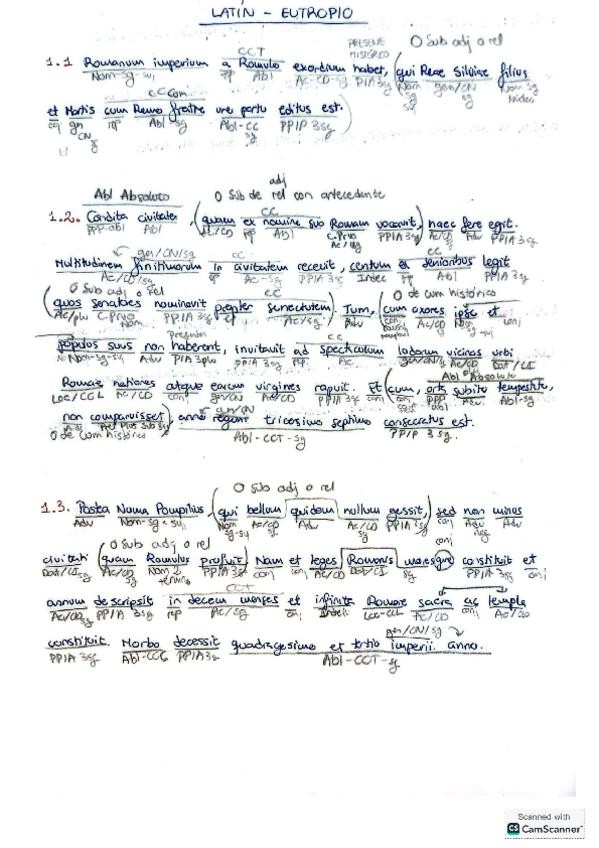 LATÍN - EUTROPIO
CCT PRESENTE HISTÓRICO O Sub adj o rel
1.1 Romanum imperium a Romulo exordium habet, (qui Reae Silviae filius
Nom-sg-suj pp Abl Ac-CD-sg PIA 3sg Nom sg suj gen/CN sg Nom sg
CCCom
et Martis cum Remo fratre uno partu editus est.)
conj gen CN sg pp Abl-sg Abl-CC sg PPIP 3sg
Abl Absoluto O Sub de rel con antecedente
adj
CC
1.2. Condita civitate, (quam ex nomine suo Romam vocavit,) haec fere egit.
PPP-abl Abl Ac/CD pp Abl C.Prvo Ac/sg PPIA 3sg Ac/CD Adv PPIA 3sg
gen/CN/sg CC CC
Multitudinem finitimorum in civitatem recepit, centum ex senioribus legit
Ac/CD/sg pp Ac-sg PPIA 3sg Indec pp Abl PPIA 3sg
O Sub adj o rel CC O de cum histórico
(quos senatores nominavit propter senectutem). Tum, (cum uxores ipse et
Ac/plu C.Prvo PPIA 3sg Ac/sg Adv Ac/CD Nom sg-suj conj
CC
populus suus non haberent, invitavit ad spectaculum ludorum vicinas urbi
Nom-sg-suj Adv PIA 3plu PPIA 3sg pp Ac gen/CN/ Ac/CD Dat/CI
Abl Absoluto
Romae nationes atque earum virgines rapuit. Et (cum, orta subito tempestate,
Loc/CCL Ac/CD conj gen/CN Ac/CD PPIA 3sg conj PPP abl Adv. Abl-sg
gen/CN
non comparuisset), anno regni tricesimo septimo consecratus est.
O de cum histórico Abl-CCT-sg PPIP 3sg.
O Sub adj o rel
1.3. Postea Numa Pompilius, (qui bellum quidem nullum gessit,) sed non minus
Adv Nom-sg suj Nom sg-suj Ac/CD sg Adv Ac/CD sg PPIA 3sg conj Adv neg
O Sub adj o rel
civitati (quam Romulus profuit) Nam et leges Romanis moresque constituit et
Dat/CI sg Nom PPIA 3sg conj conj Ac/CD Dat/CI PPIA 3sg conj
CCT
annum descripsit in decem menses et infinita Romae sacra ac templa
Ac/CD sg PPIA 3sg pp Ac/sg conj Loc-CCL Ac/CD Ac/CD
gen/CN/sg
constituit. Morbo decessit quadragesimo et tertio imperii anno.
PPIA 3sg Abl-CCC PPIA 3sg Abl-CCT-sg
Scanned with
CS CamScanner